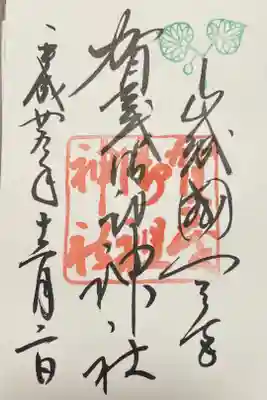 山城國一之宮
賀茂御祖神社
賀茂
御祖
神社
平成廿年月二日